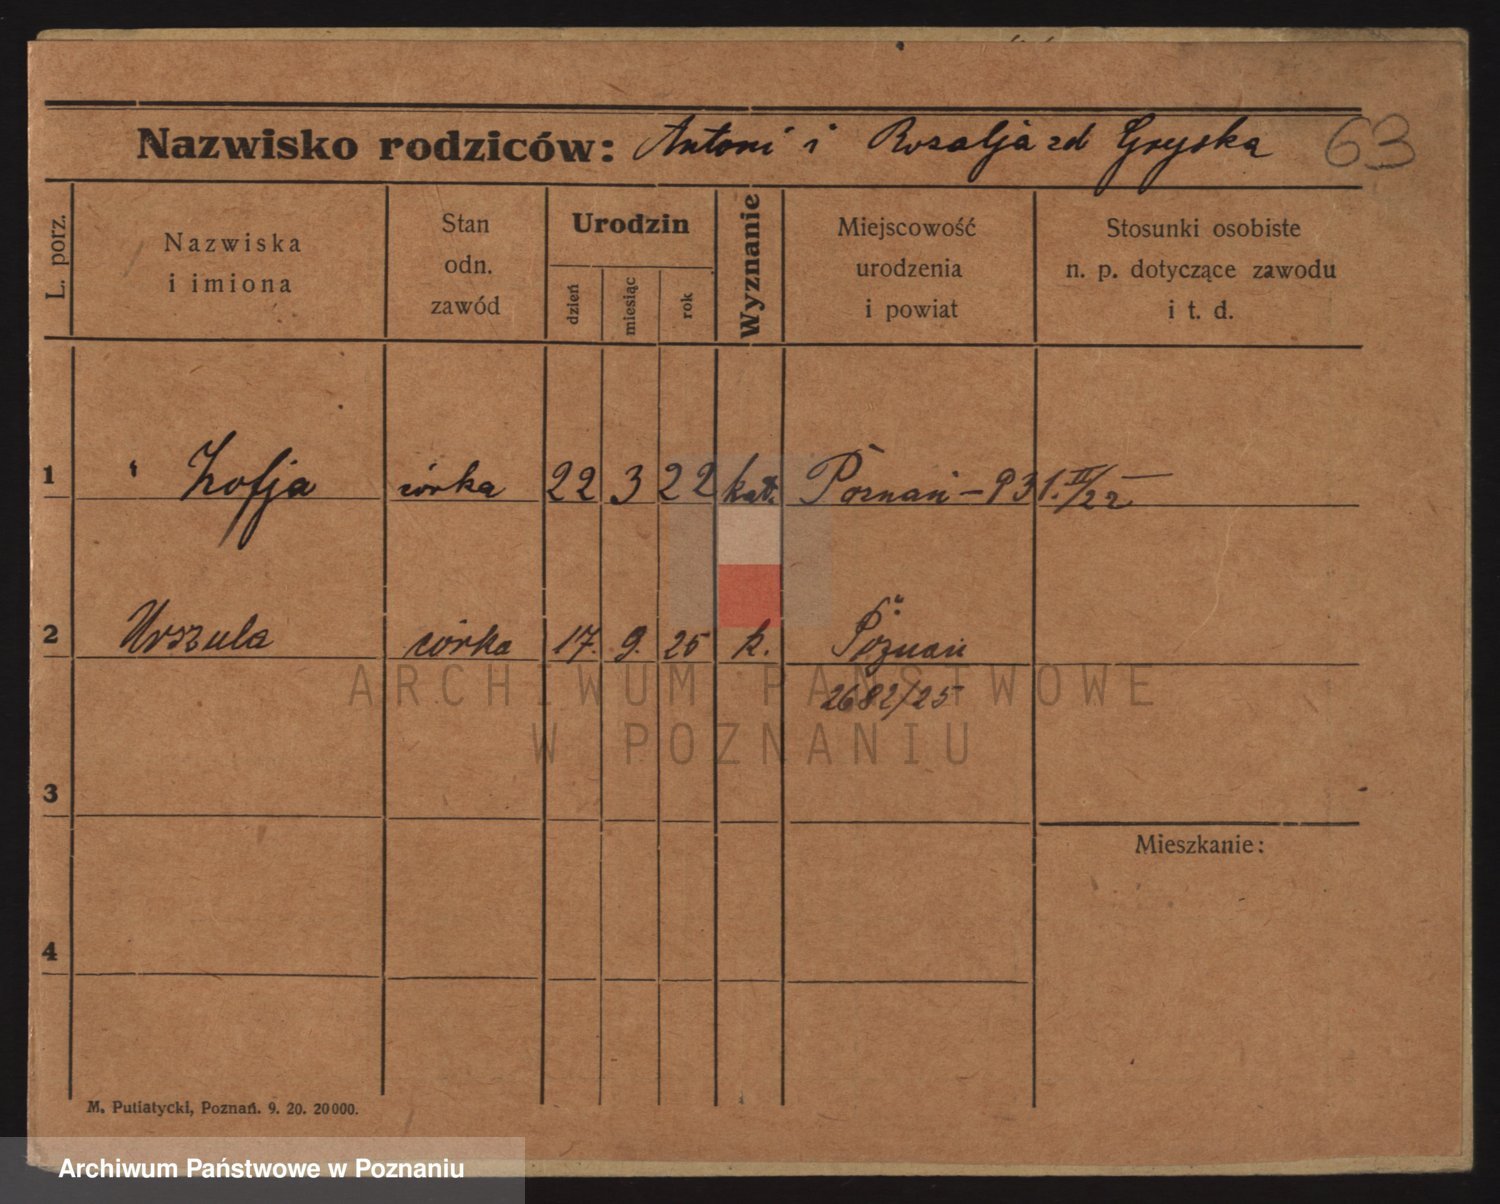 Nazwisko rodziców: Antoni i Rozalja zd Gryska 63
L. porz.
Nazwiska
i imiona
Stan
odn.
zawód
Urodzin
dzień
miesiąc
rok
Wyznanie
Miejscowość
urodzenia
i powiat
Stosunki osobiste
n. p. dotyczące zawodu
i t. d.
1 Zofja córka 22 3 22 kat. Poznań - 931. II/22
2 Urszula córka 17. 9. 25 k. Poznań
2682/25
3
Mieszkanie:
4
M. Putiatycki, Poznań. 9. 20. 20000.
ARCHIWUM PAŃSTWOWE
W POZNANIU
Archiwum Państwowe w Poznaniu